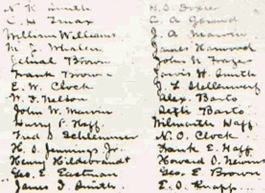 N. K. Smith
C. H. Truax
William Williams
M. C. Whalen
Brown
Frank Brown
E. W. Clock
W. F. Nelson
John W. Marvin
Henry F. Haff
Fred Schlemmer
H. O. Jennings, Jr.
Henry Hildebrandt
Geo. E. Eastman
James I. Smith
H. S. Dozier
C. A. Gerard
J. A. Marvin
James Hammond
John N. Frazer
Jarvis H. Smith
J. L. Stellenwerf
Alex. Barto
Seth Barto
Dilworth Haff
N. O. Clock
Frank E. Haff
Howard O. Newins
Geo. E. Brown
E. O. Happ